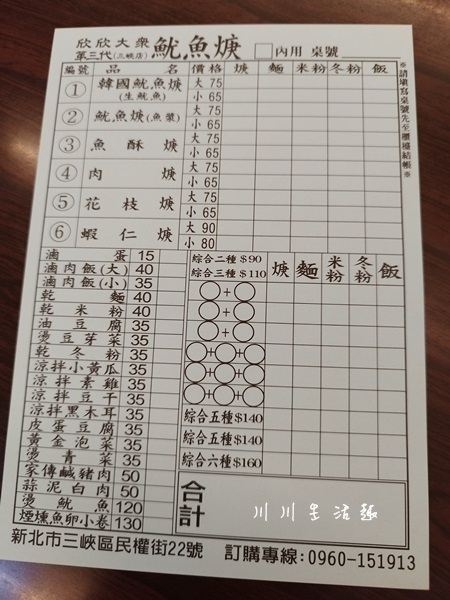 欣欣大衆
第三代(三峽店)
魷魚焿 內用 桌號
編號 品名 價格 焿 麵 米粉 冬粉 飯
① 韓國魷魚焿(生魷魚) 大 75 小 65
② 魷魚焿(魚漿) 大 75 小 65
③ 魚酥焿 大 75 小 65
④ 肉焿 大 75 小 65
⑤ 花枝焿 大 75 小 65
⑥ 蝦仁焿 大 90 小 80
※請填寫桌號先至櫃檯結帳※
滷蛋 15
滷肉飯(大) 40
滷肉飯(小) 35
乾麵 40
乾米粉 40
油豆腐 35
燙豆芽菜 35
乾冬粉 35
涼拌小黃瓜 35
涼拌素雞 35
涼拌豆干 35
涼拌黑木耳 35
皮蛋豆腐 35
黃金泡菜 35
燙青菜 35
家傳鹹豬肉 50
蒜泥白肉 50
燙魷魚 120
煙燻魚卵小卷 130
綜合二種$90
綜合三種$110
焿 麵 米粉 冬粉 飯
+
+
+
+ +
+ +
+ +
綜合五種$140
綜合五種$140
綜合六種$160
合計
川川生活趣
新北市三峽區民權街22號 訂購專線:0960-151913